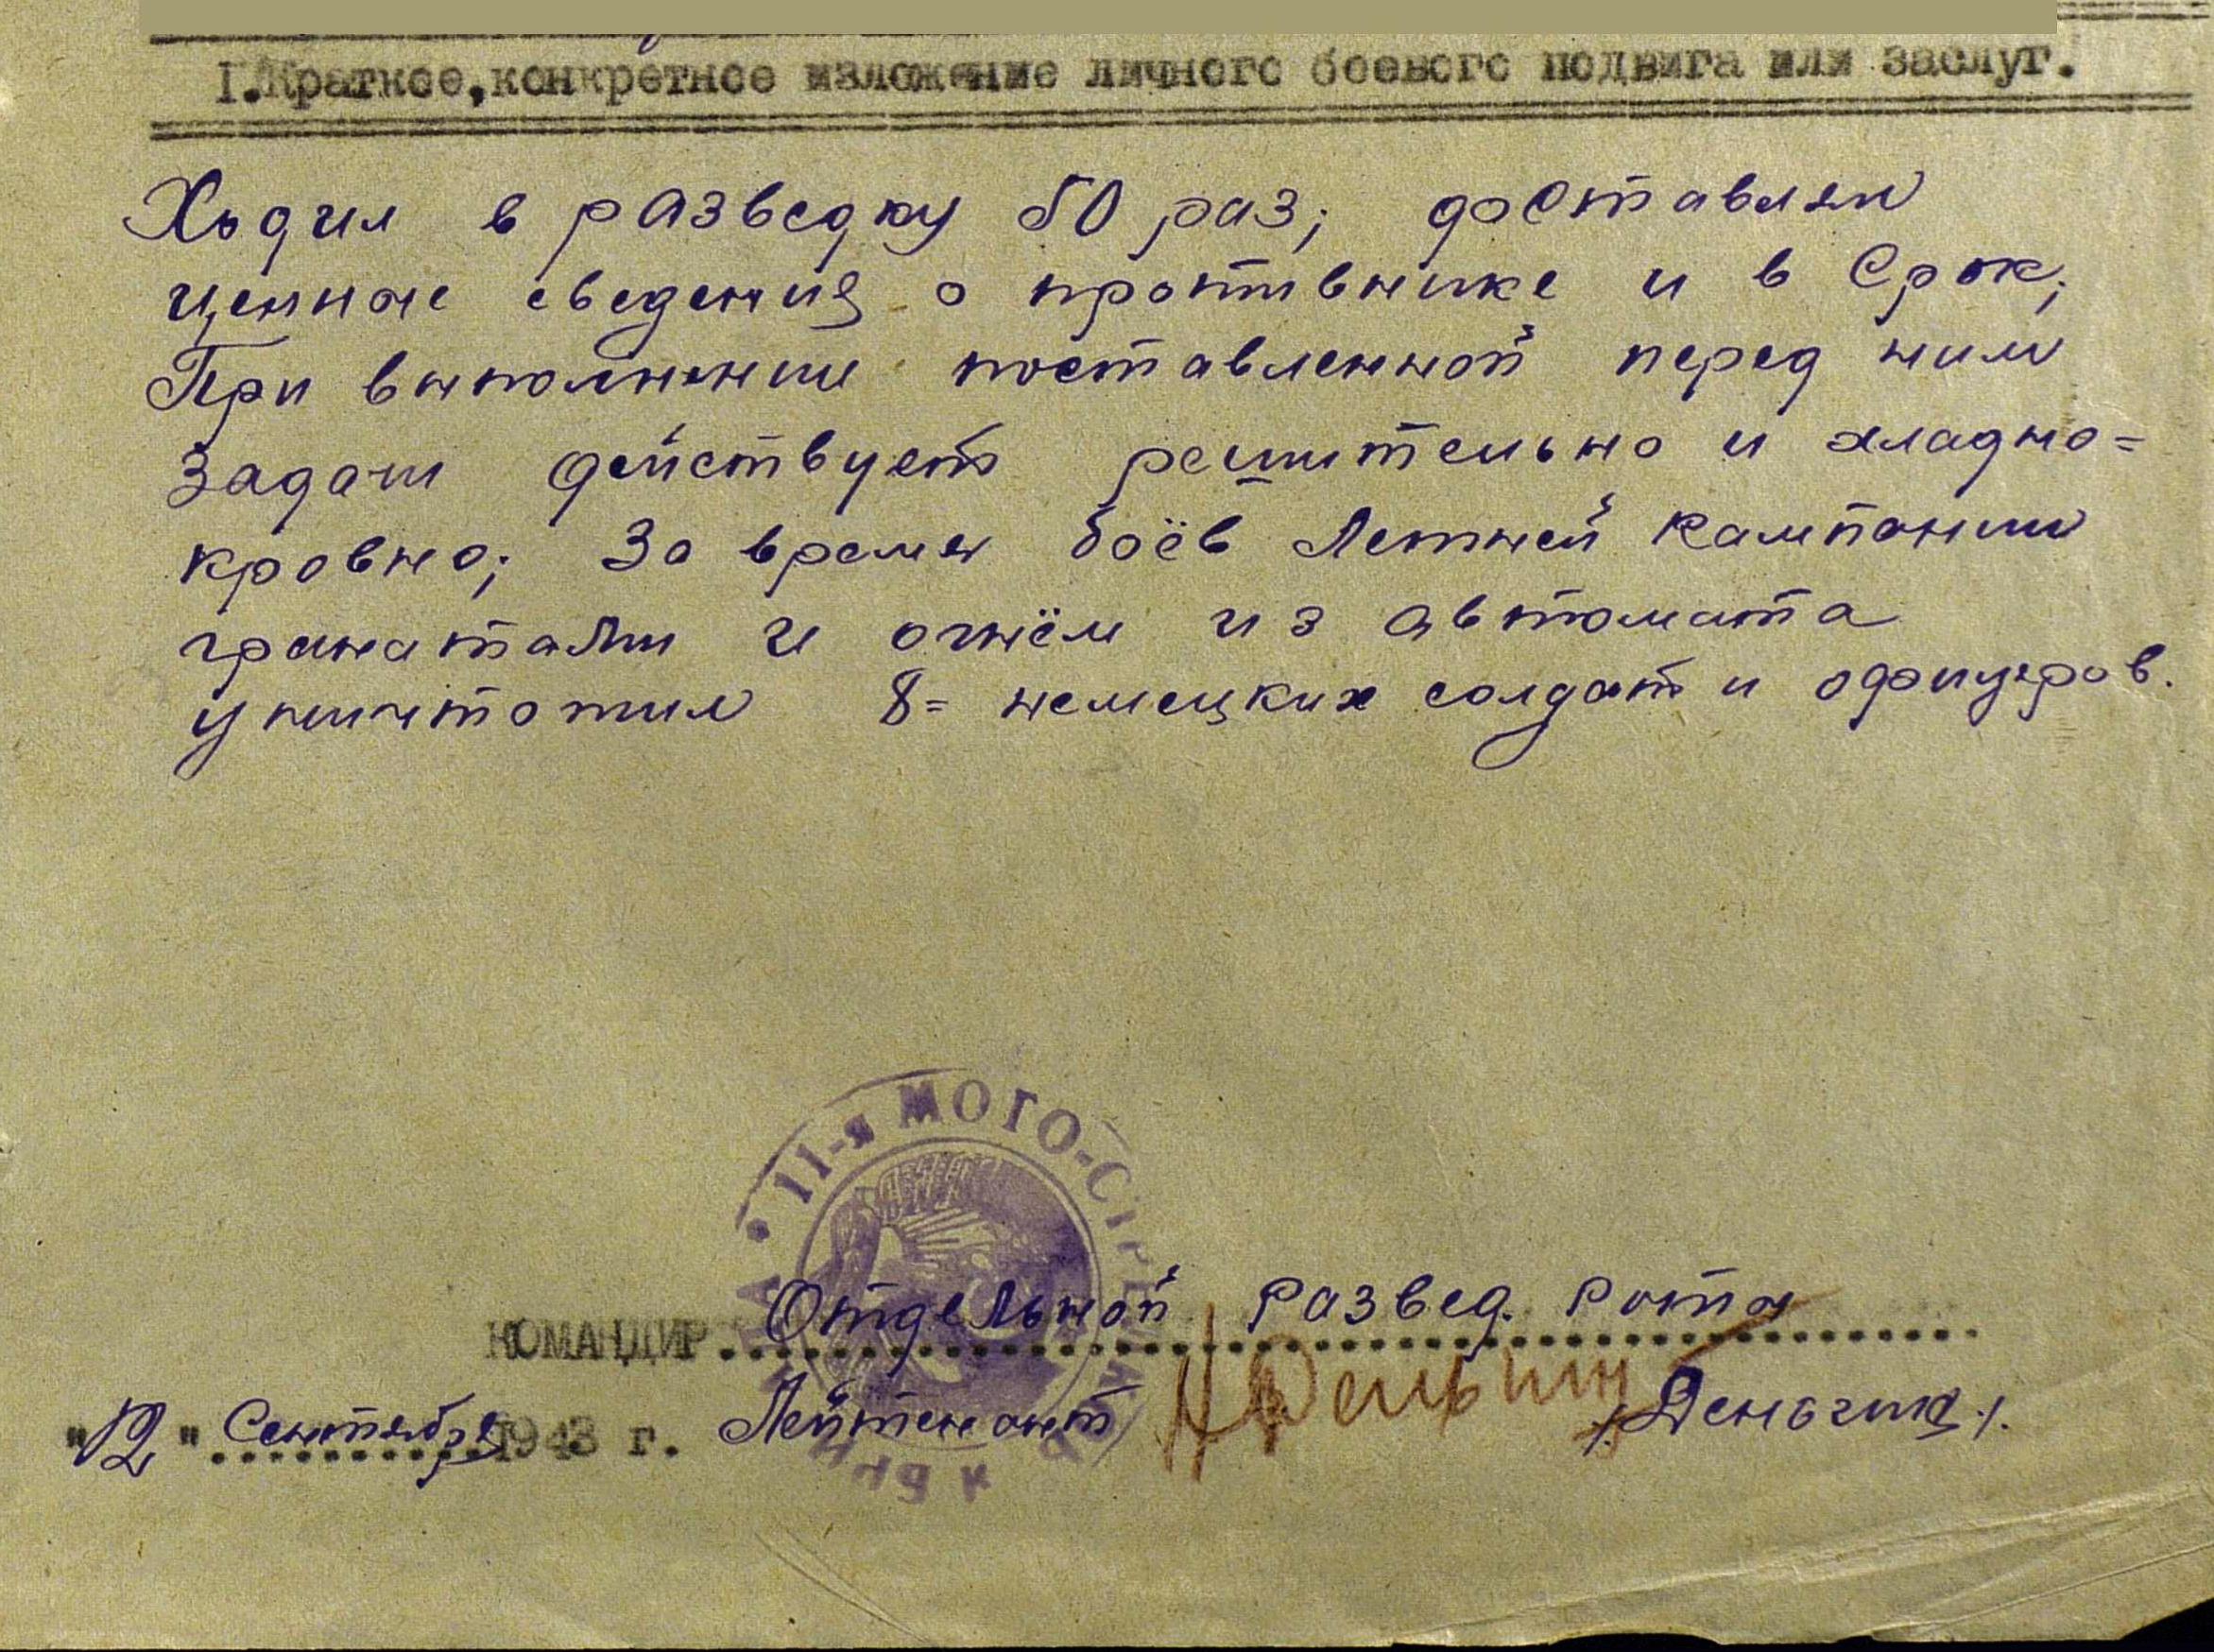 I. Краткое, конкретное изложение личного боевого подвига или заслуг.
Ходил в разведку 50 раз; доставлял
ценные сведения о противнике и в срок;
При выполнении поставленной перед ним
задачи действует решительно и хладно=
кровно; За время боёв Летней кампании
гранатами и огнём из автомата
уничтожил 8= немецких солдат и офицеров.
11-я МОТО-СТРЕЛКОВАЯ
КОМАНДИР Отдельной развед. роты
"12" Сентября 1943 г. Лейтенант /Деньгин/.